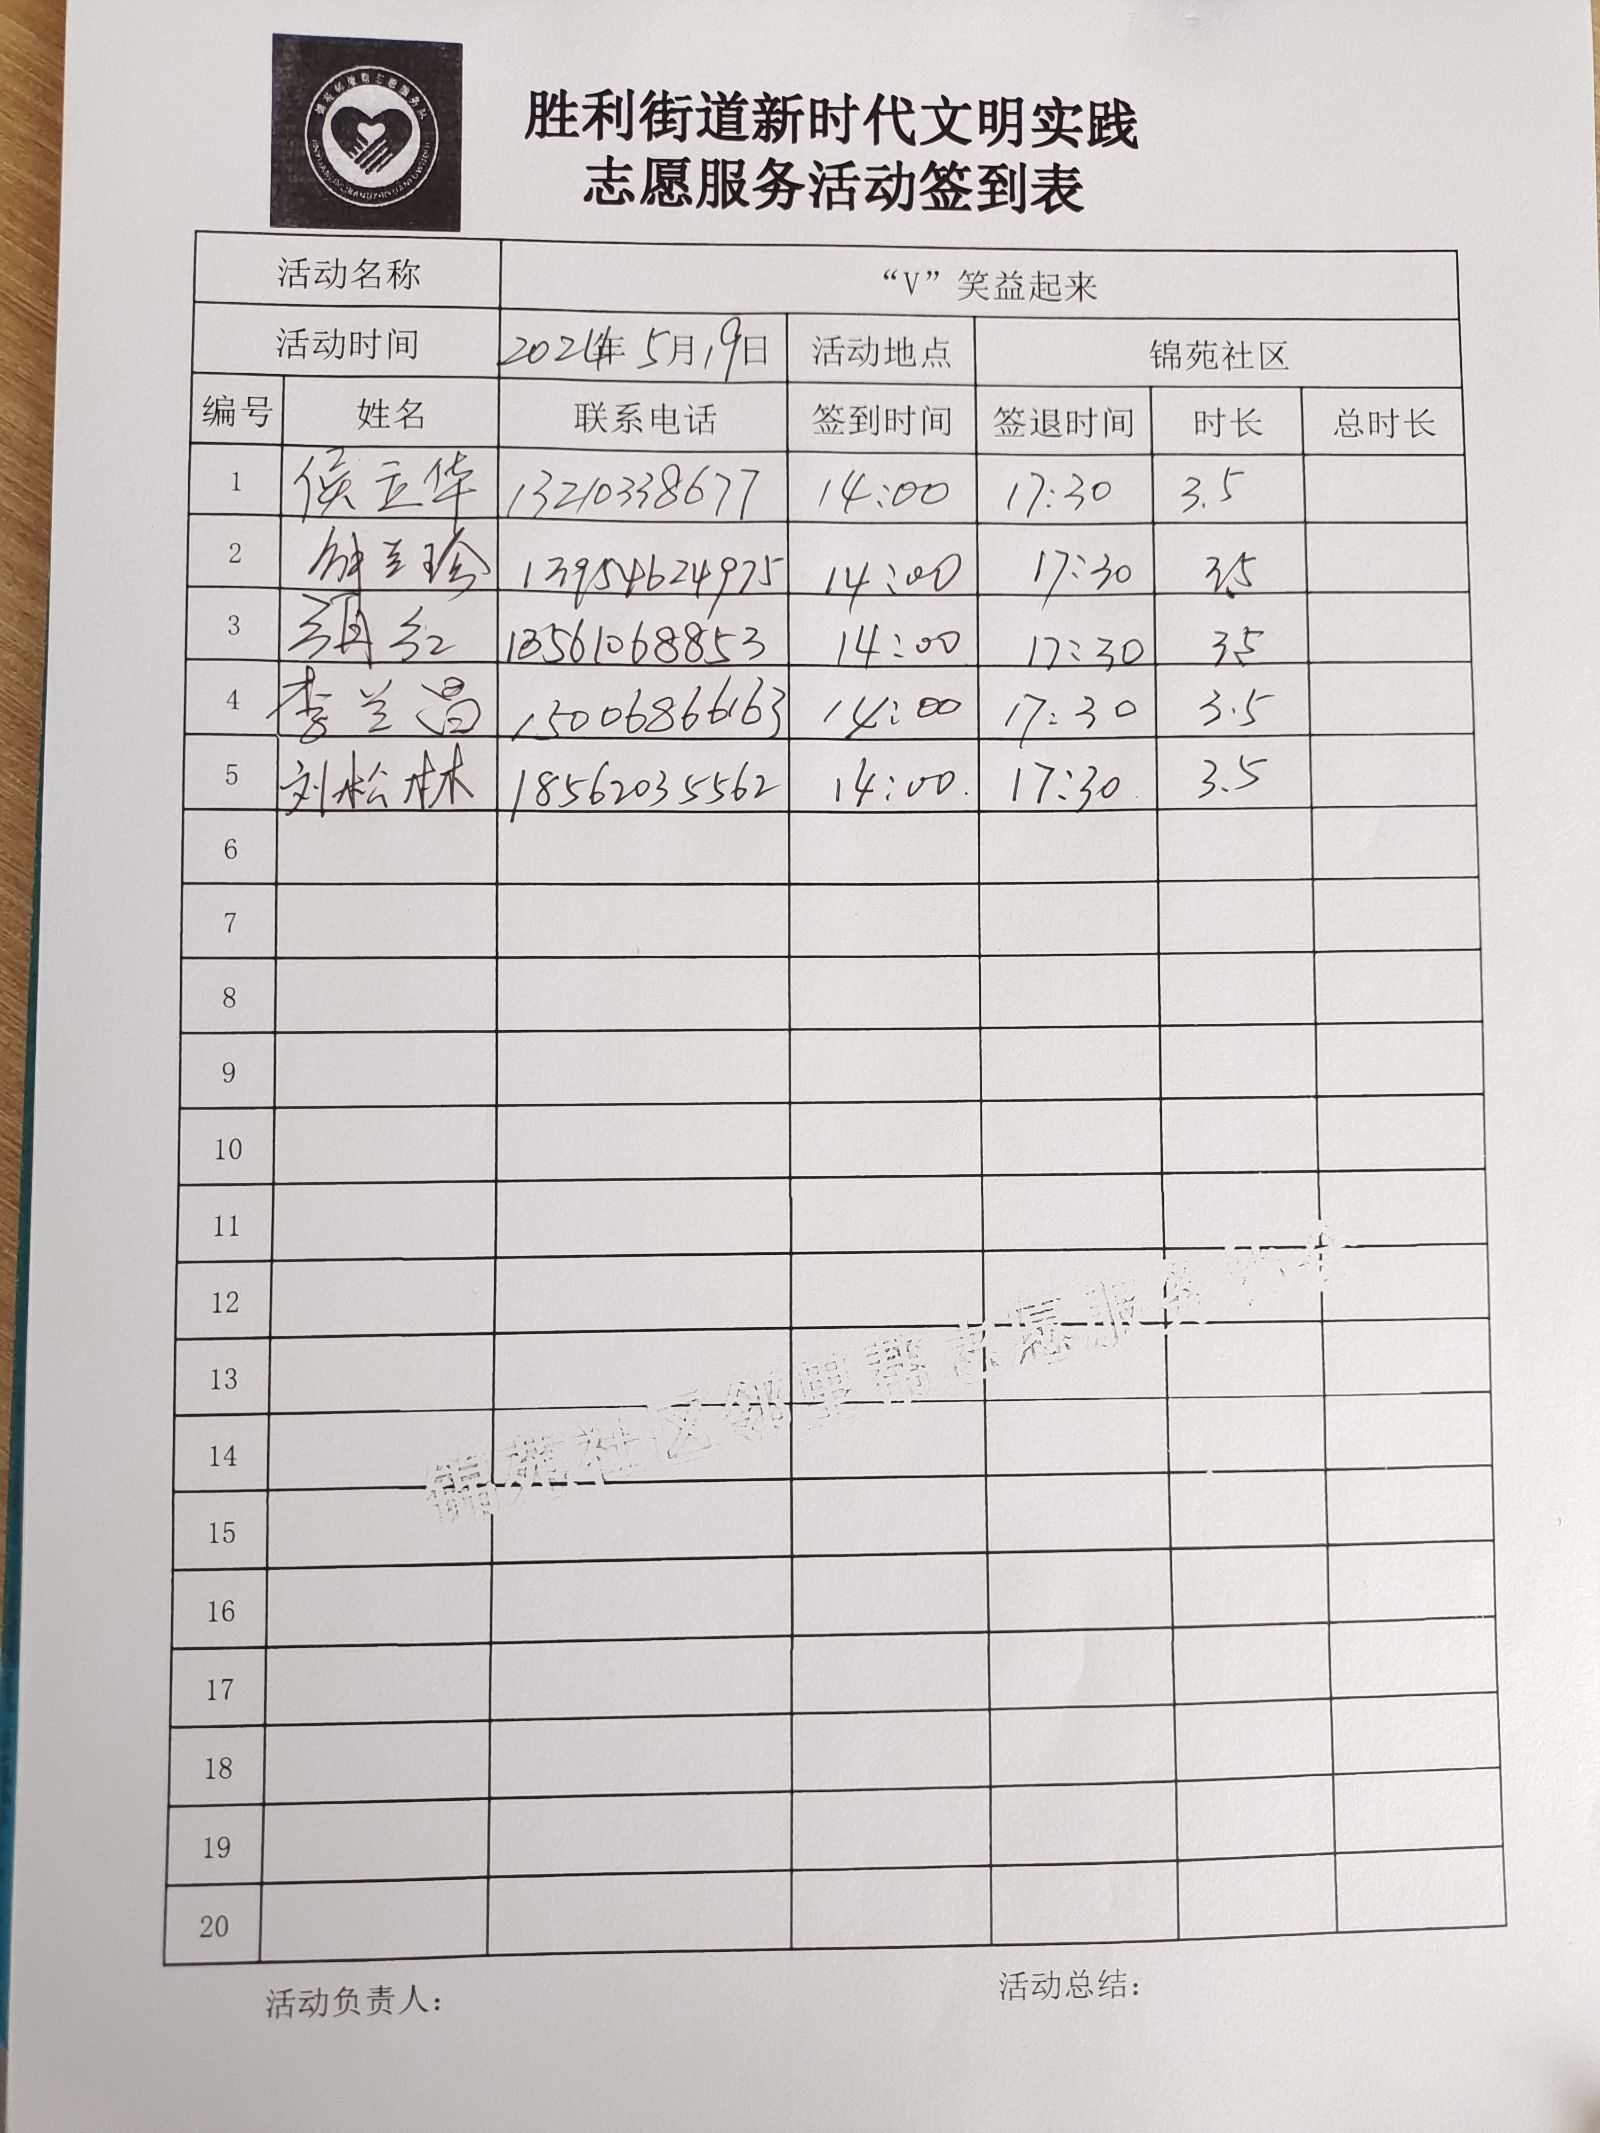 胜利街道新时代文明实践
志愿服务活动签到表
活动名称 “V”笑益起来
活动时间 2024年 5月19日 活动地点 锦苑社区
编号 姓名 联系电话 签到时间 签退时间 时长 总时长
1 侯立华 13210338677 14:00 17:30 3.5
2 钟兰珍 13954624975 14:00 17:30 3.5
3 红 13561068853 14:00 17:30 3.5
4 李兰昌 15006866163 14:00 17:30 3.5
5 刘松林 18562035562 14:00 17:30 3.5
6
7
8
9
10
11
12
13
14
15
16
17
18
19
20
锦苑社区邻里帮志愿服务
活动负责人： 活动总结：